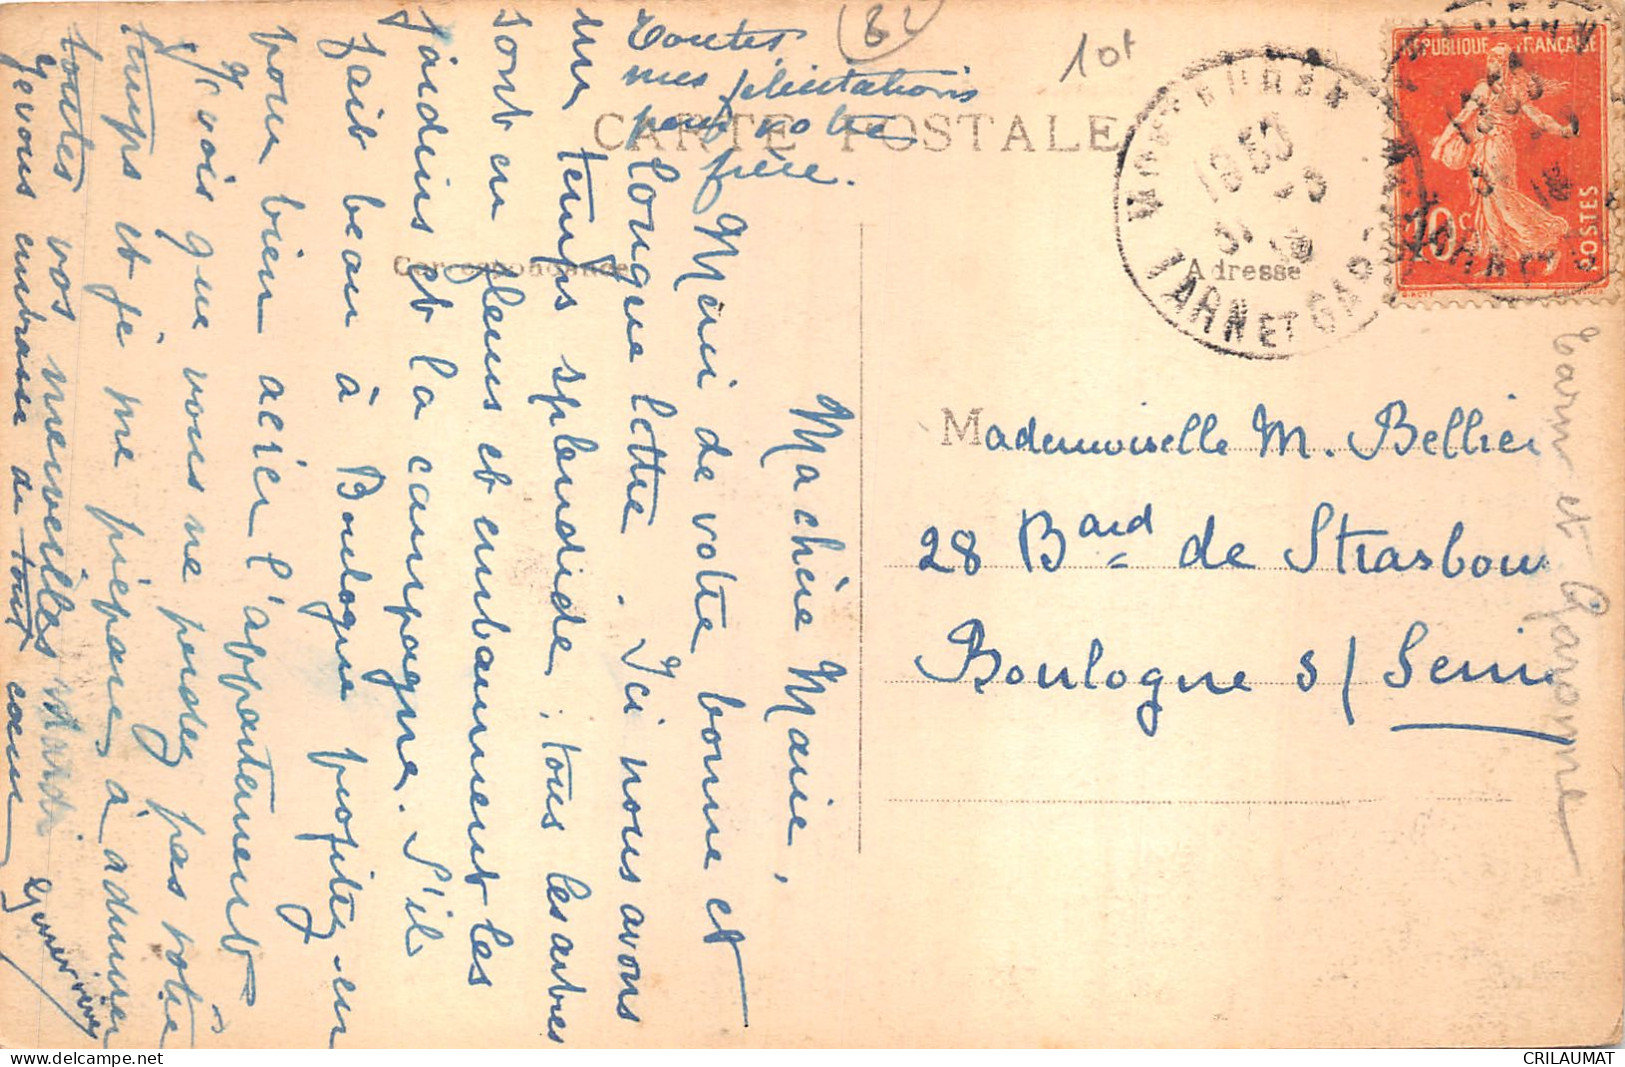 Toutes
mes félicitations
pour votre
frère.
82
10t
CARTE POSTALE
Correspondance
Adresse
RÉPUBLIQUE FRANÇAISE
10c
POSTES
TARN ET GARONNE
Ma chère Marie,
Merci de votre bonne et
longue lettre. Ici nous avons
un temps splendide ; tous les arbres
sont en fleurs et embaument les
jardins et la campagne. S'il
fait beau à Boulogne profitez-en
pour bien aérer l'appartement
Je vois que vous ne perdez pas votre
temps et je me prépare à admirer
toutes vos merveilles
Je vous embrasse de tout coeur
Mademoiselle M. Bellier
28 Bard de Strasbour
Boulogne s/ Seine
Tarn et Garonne
CRILAUMAT